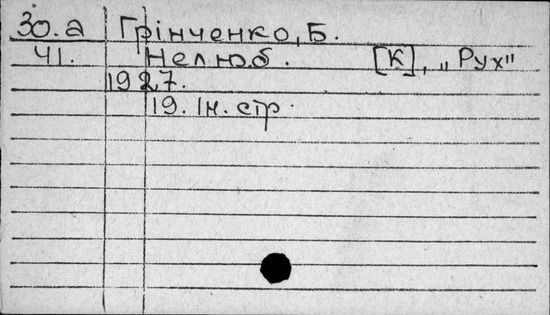 30.а Грінченко, Б.
41. Нелюб. [К], „Рух"
1927.
19. Ін. стр.